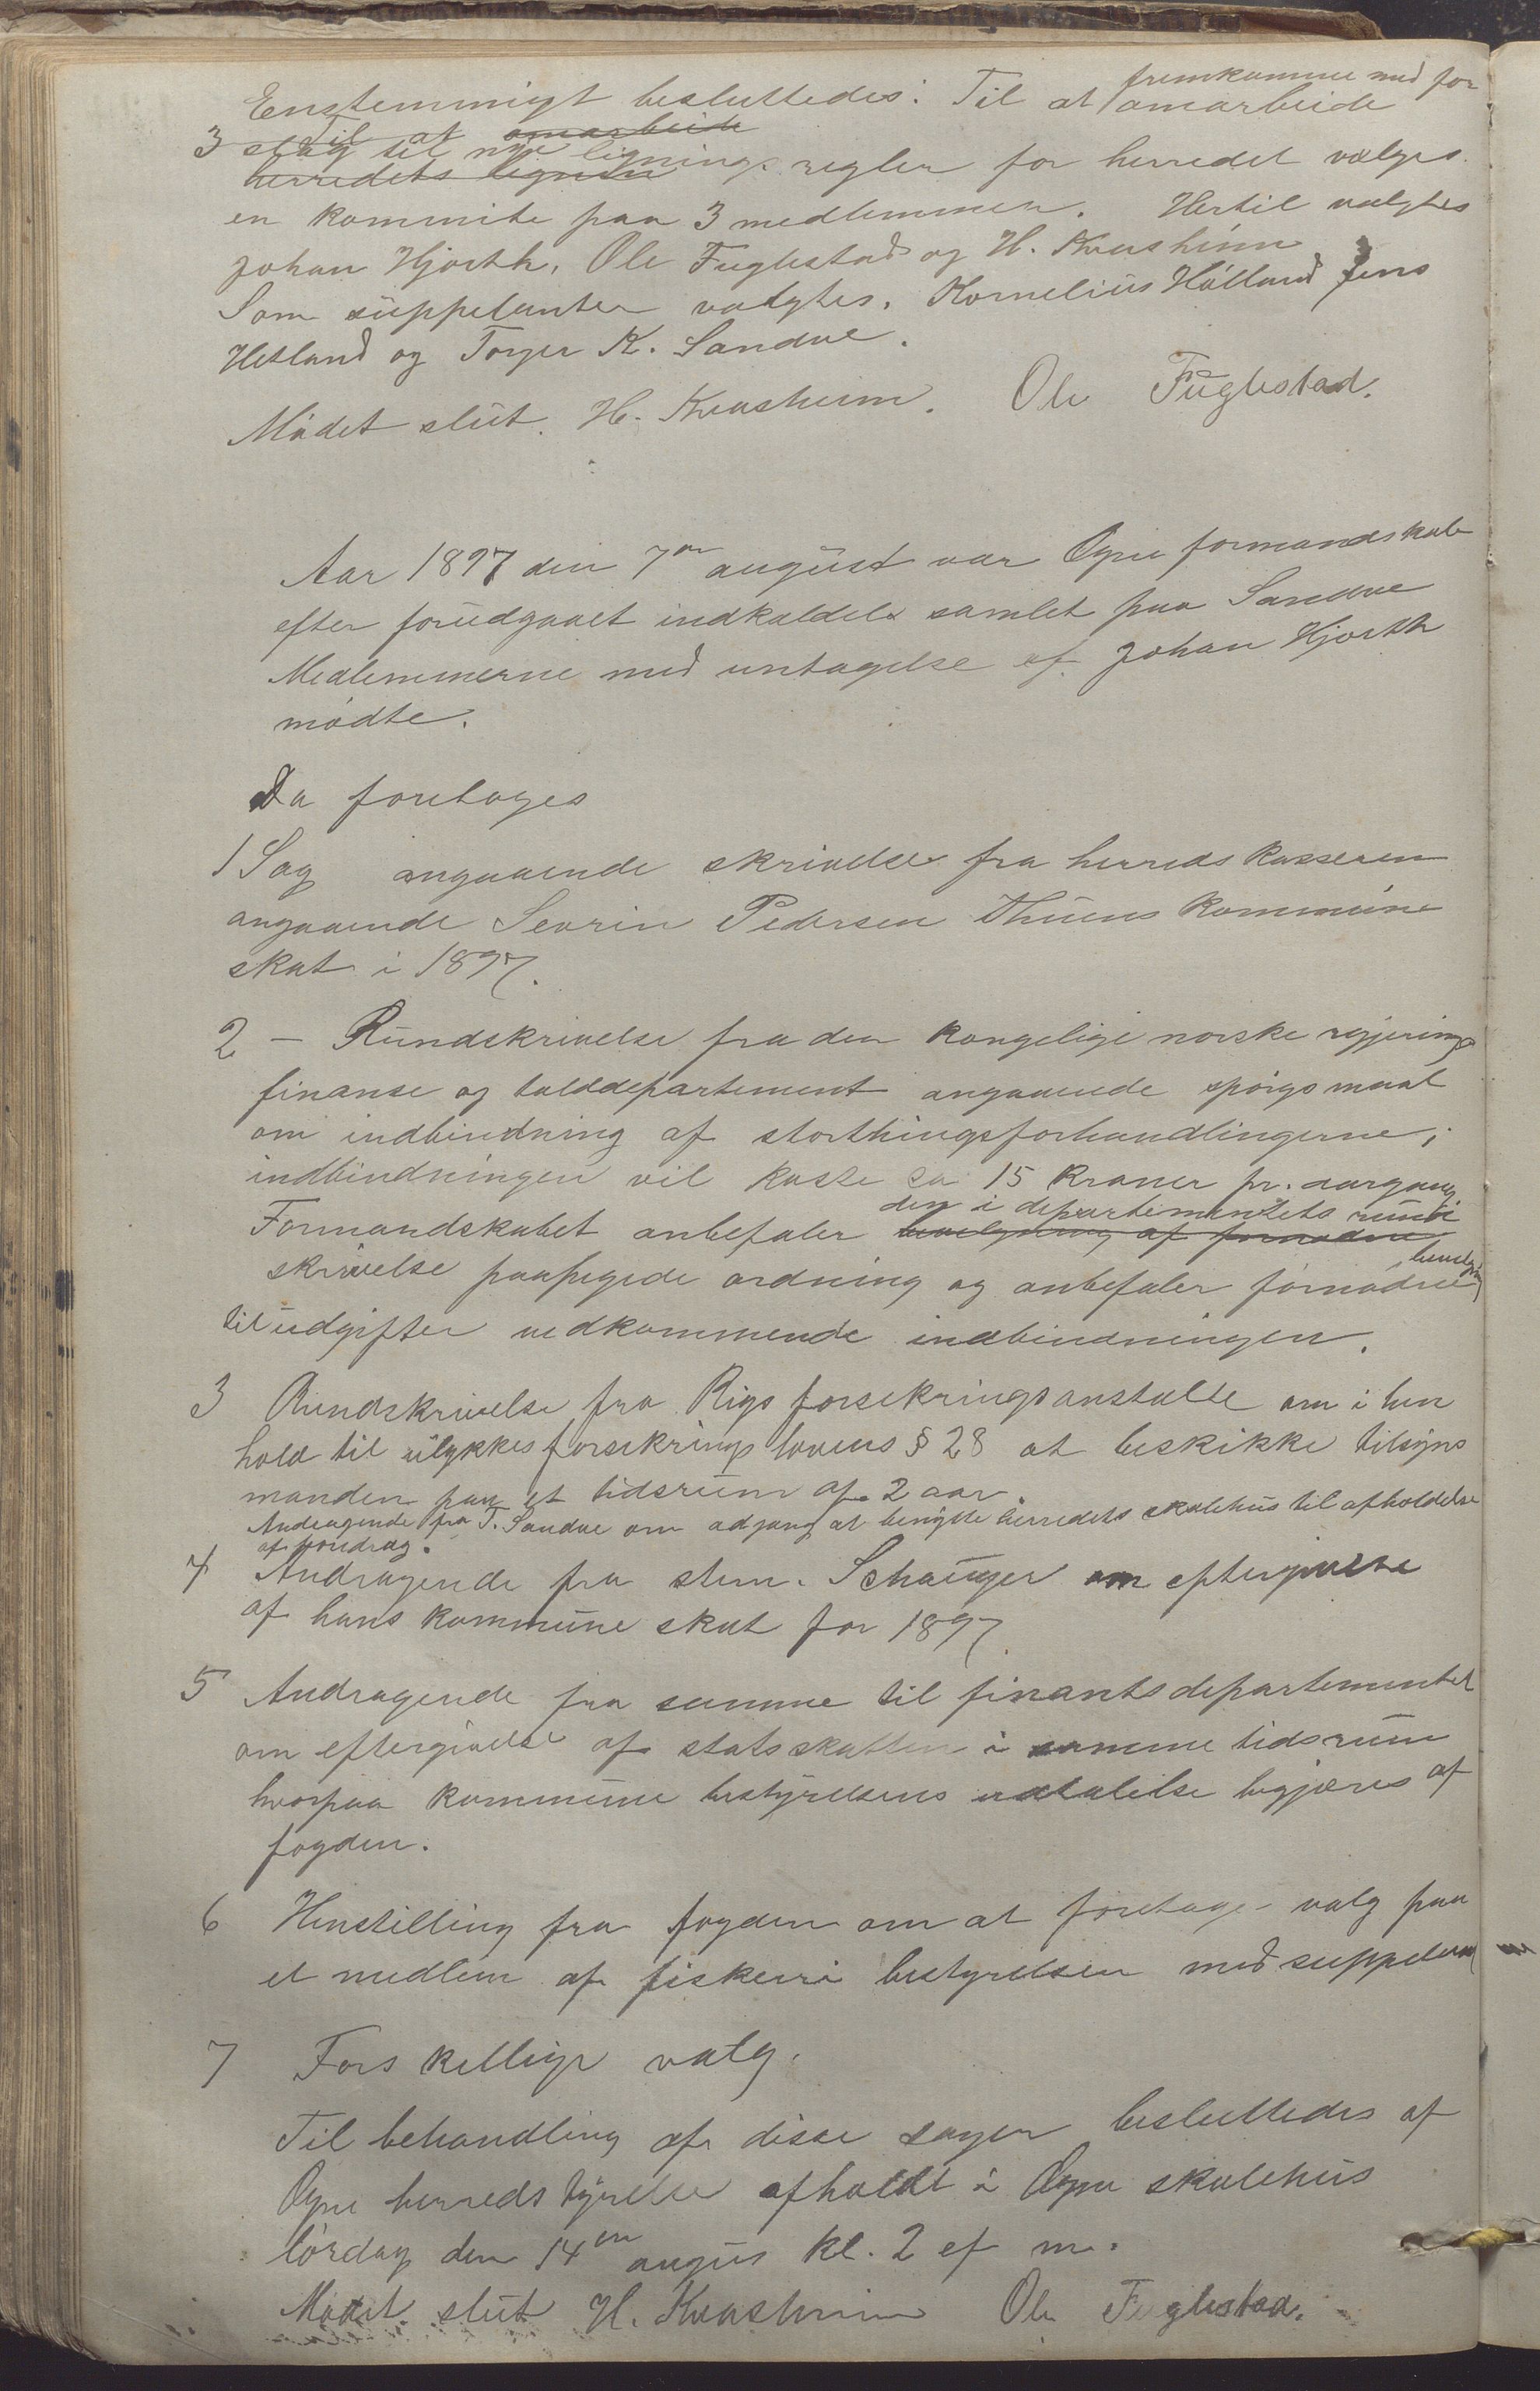 Enstemmigt besluttedes: Til at fremkomme med for
omarbeide
3 Til at omarbeide
slag til nye lignings regler for herredet vælges
herredets lignin
en kommite paa 3 medlemmer. Hertil valgtes
Johan Hjorth, Ole Fuglestad og H. Kvasheim
Som suppelanter valgtes. Kornelius Hålland Jens
Hetland og Torger K. Sandve.
Mödet slut. H. Kvasheim. Ole Fuglestad.
Aar 1897 den 7en august var Ogne formandskab
efter forudgaaet indkaldelse samlet paa Sandve
Medlemmerne med untagelse af Johan Hjorth
mödte.
Da foretages
1 Sag angaaende skrivelse fra herreds kasseren
angaaende Sevrin Pedersen Thuens kommune
skat i 1897.
2 - Rundskrivelse fra den kongelige norske regjerings
finanse og tolddepartement angaaende spörgsmaal
om indbindning af storthingsforhandlingerne,
indbindningen vil koste ca 15 kroner pr. aargang
Formandskabet anbefaler bevilgning af fornødne den i departementets rund
skrivelse paapegede ordning og anbefaler fornødne bevilgning
til udgifter vedkommende indbindningen.
3 Rundskrivelse fra Rigsforsekringsanstalte om i hen
hold til ulykkesforsekrings lovens § 28 at beskikke tilsyns
manden paa et tidsrum af 2 aar.
Andragende fra T. Sandve om adgang at benytte herredets skolehus til afholdelse
af foredrag.
4 Andragende fra stem. Schanger om eftergivelse
af hans kommune skat for 1897.
5 Andragende fra samme til finantsdepartementet
om eftergivelse af statsskatten i samme tidsrum
hvorpaa kommune bestyrelsens udtalelse begjæres af
fogden.
6 Henstilling fra fogden om at foretage valg paa
et medlem af fiskeri bestyrelsen med suppelant
7 Forskellige valg.
Til behandling af disse sager besluttedes af
Ogne herredstyrelse afholdt i Ogne skolehus
lördag den 14en augus kl. 2 ef m.
Mödet slut H. Kvasheim Ole Fuglestad.